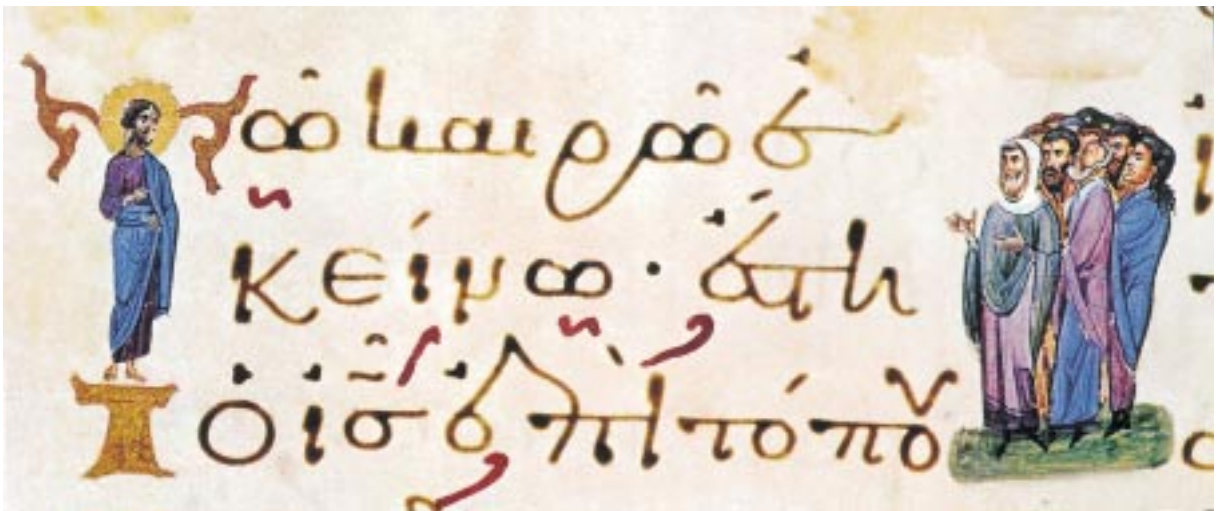 Τῶ καιρῶ ἐ
κείνω · ἔστη
ὁ ἰ̅σ̅ ἐπὶ τόπου